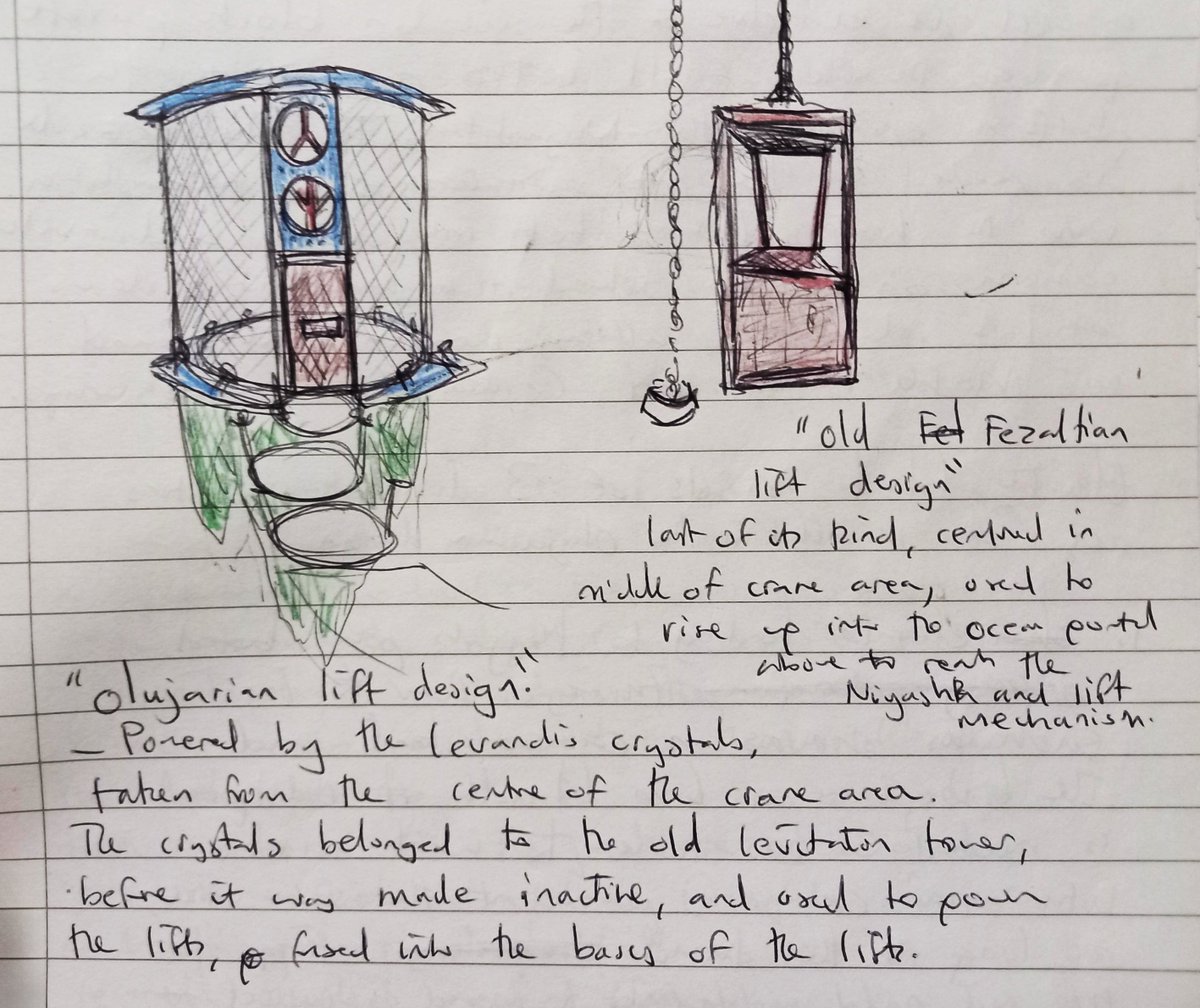 "old Fel Fezaltian
lift design"
last of its kind, centred in
middle of crane area, used to
rise up into the ocean portal
above to reach the
Niyashk and lift
mechanism.
"olujarian lift design."
– Powered by the levandis crystals,
taken from the centre of the crane area.
The crystals belonged to the old levitation tower,
before it was made inactive, and used to power
the lifts, fused into the bases of the lifts.